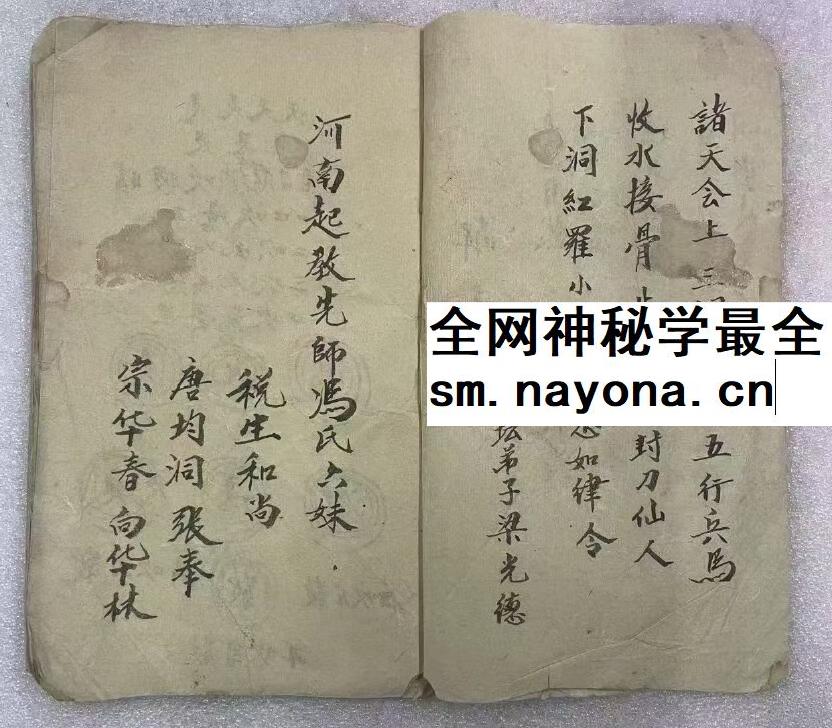 諸天会上三 五行兵馬
收水接骨 封刀仙人
下洞紅羅小 如律令
坛弟子梁光德
河南起教先師馮氏六妹
税生和尚
唐均洞 張奉
宗华春 向华林
全网神秘学最全
sm.nayona.cn